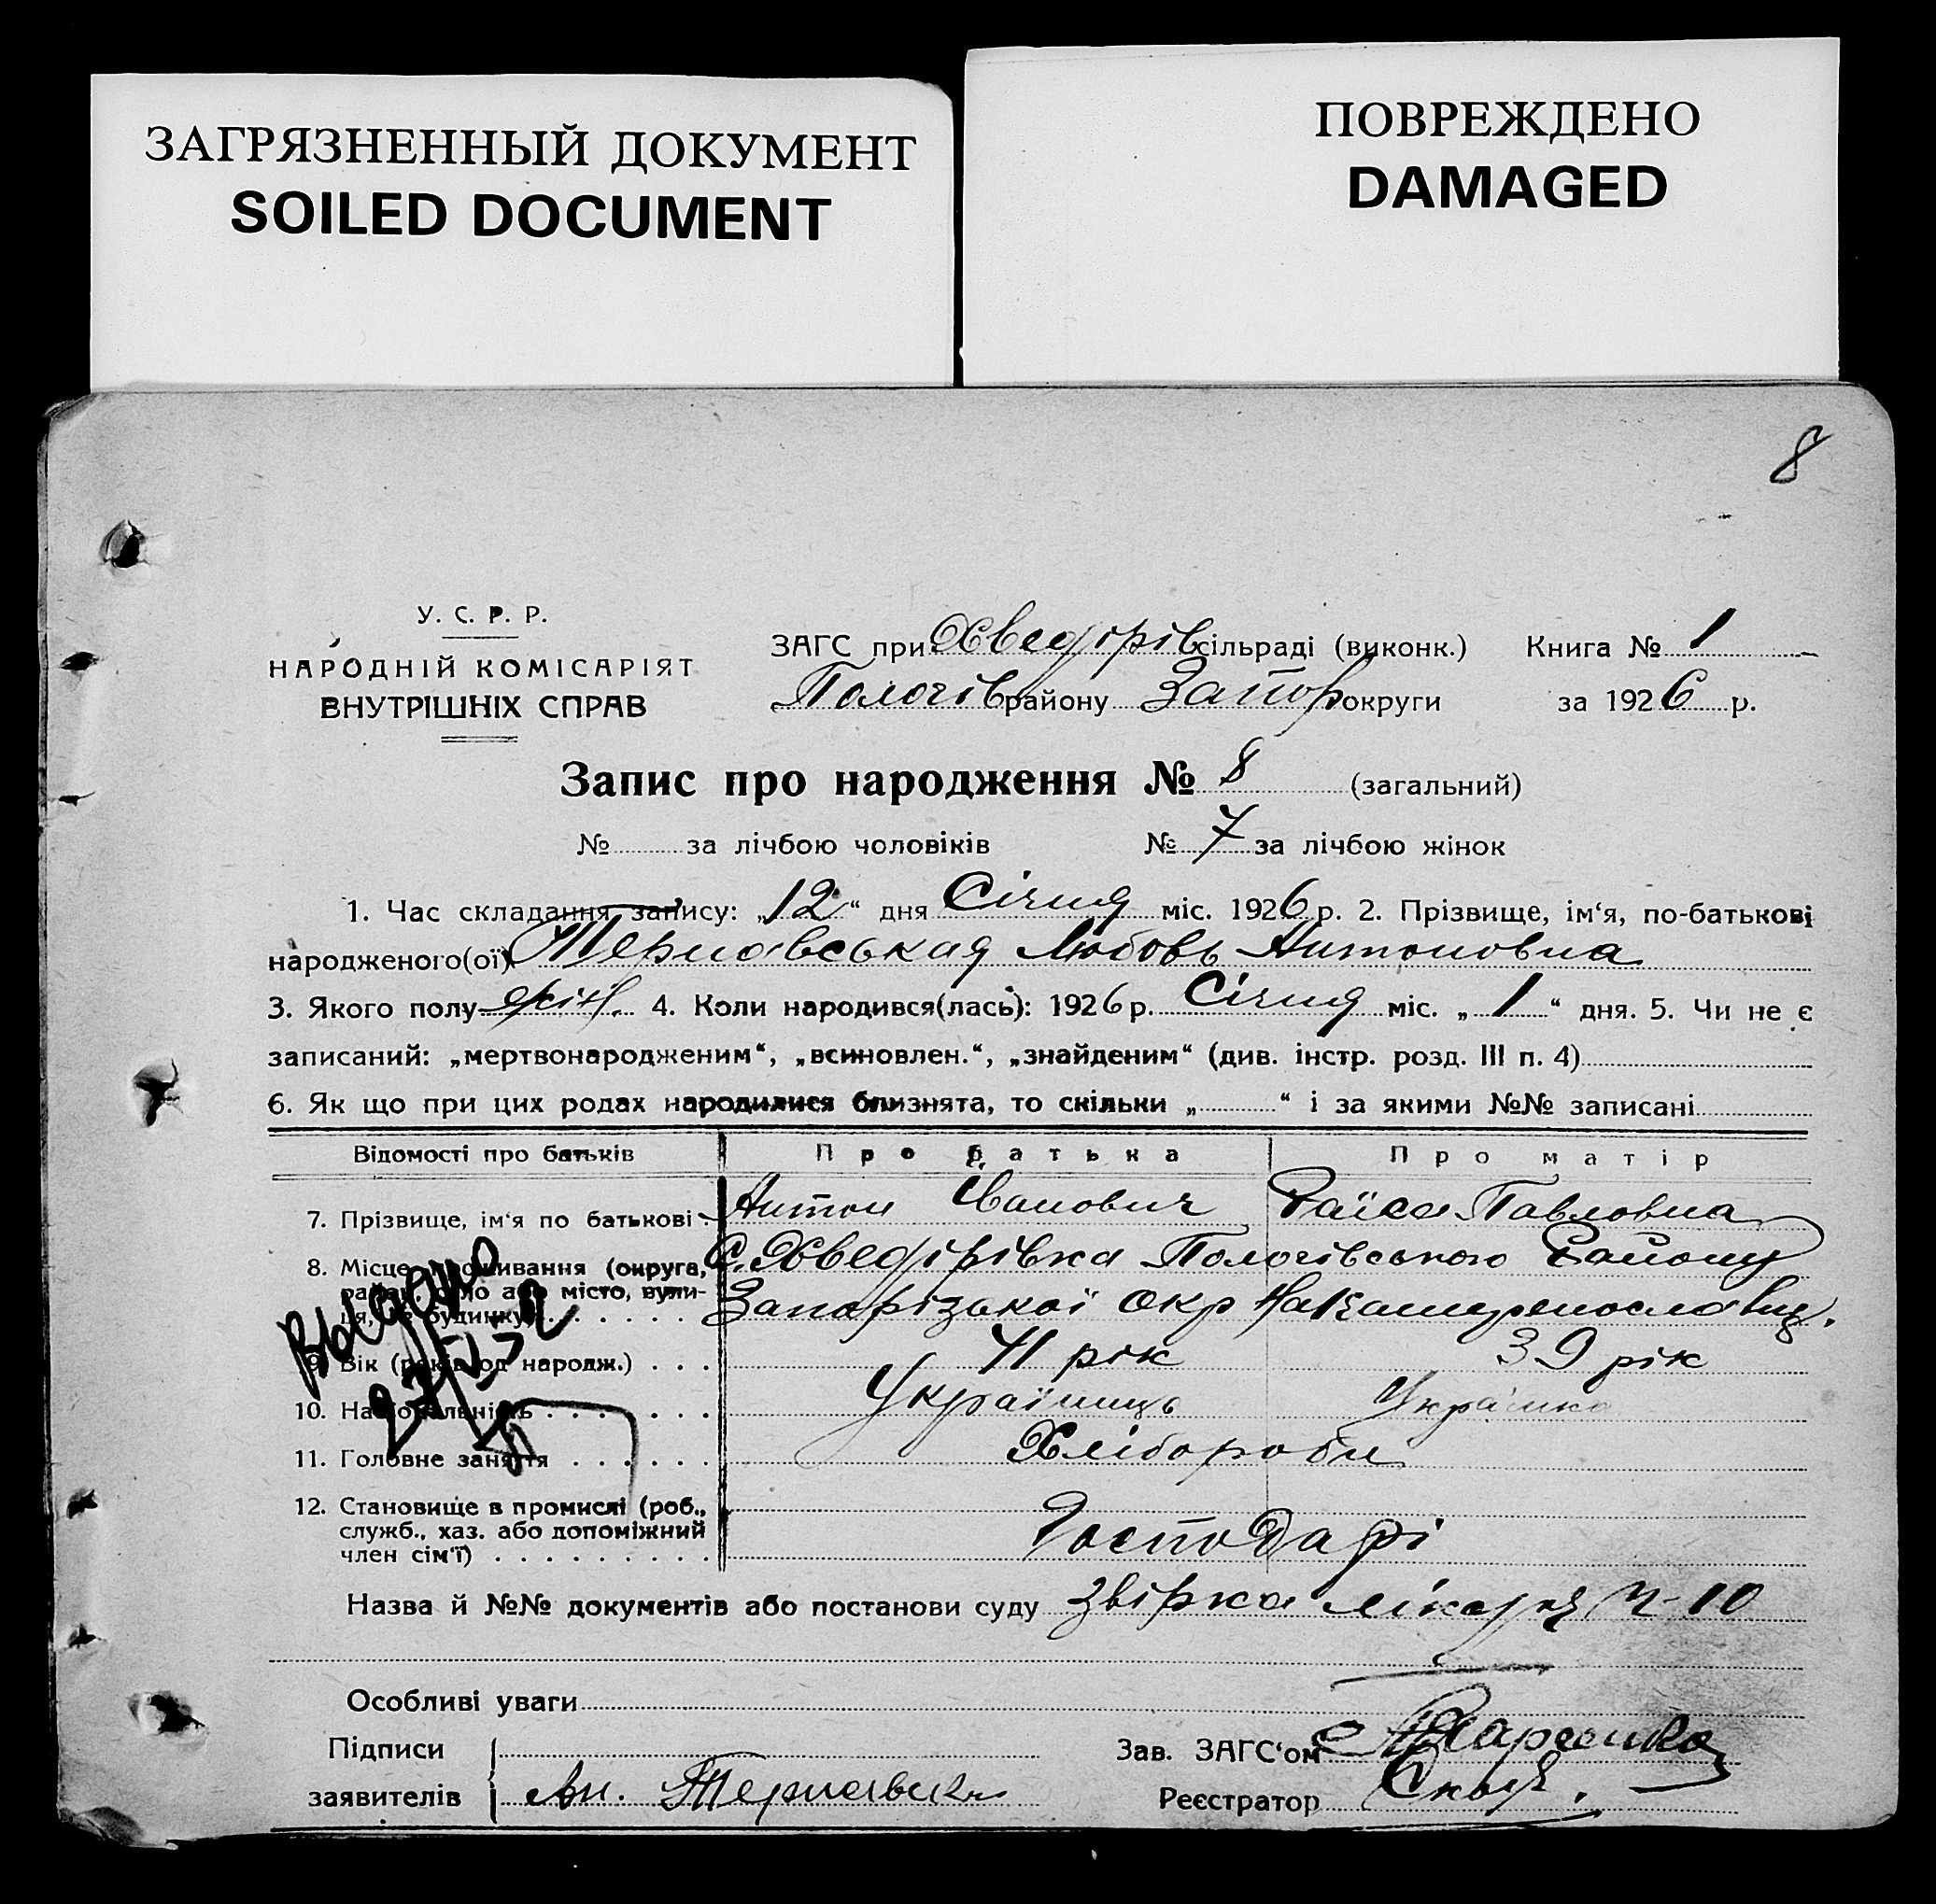 ЗАГРЯЗНЕННЫЙ ДОКУМЕНТ
SOILED DOCUMENT
ПОВРЕЖДЕНО
DAMAGED
8
У. С. Р. Р.
НАРОДНІЙ КОМІСАРІЯТ
ВНУТРІШНІХ СПРАВ
ЗАГС при Хведірів сільраді (виконк.) Книга № 1
Пологів району Запор округи за 1926 р.
Запис про народження № 8 (загальний)
№ за лічбою чоловіків № 7 за лічбою жінок
1. Час складання запису: „12“ дня Січня міс. 1926 р. 2. Прізвище, ім‘я, по-батькові
народженого(ої) Тернавськая Любовь Антоновна
3. Якого полу жін. 4. Коли народився(лась): 1926 р. Січня міс. „1“ дня. 5. Чи не є
записаний: „мертвонародженим“, „всиновлен.“, „знайденим“ (див. інстр. розд. III п. 4)
6. Як що при цих родах народилися близнята, то скільки „ “ і за якими №№ записані
Відомості про батьків Про батька Про матір
7. Прізвище, ім‘я по батькові Антон Іванович Раїса Павловна
8. Місце проживання (округа, С. Хведірівка Пологівського Району
район, село або місто, вули-
ця, № будинку) Запорізької окр
9. Вік (років од народж.) 41 рік 39 рік
10. Національність Українець Українка
11. Головне заняття Хлібороби
12. Становище в промислі (роб.,
служб., хаз. або допоміжний
член сім‘ї) Господарі
Выдано
Назва й №№ документів або постанови суду Звірка лікаря Ч-10
Особливі уваги
Підписи Зав. ЗАГС‘ом
заявителів Ан. Тернавск Реєстратор